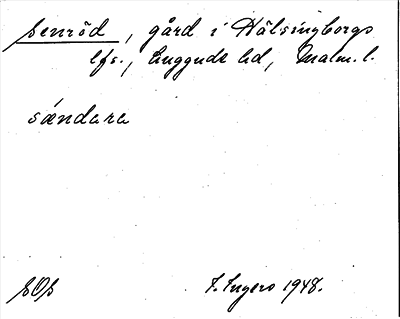 Senröd, gård i Hälsingborgs
lfs., Luggude hd, Malm. l.
sǽndara
F. Ingers 1948.